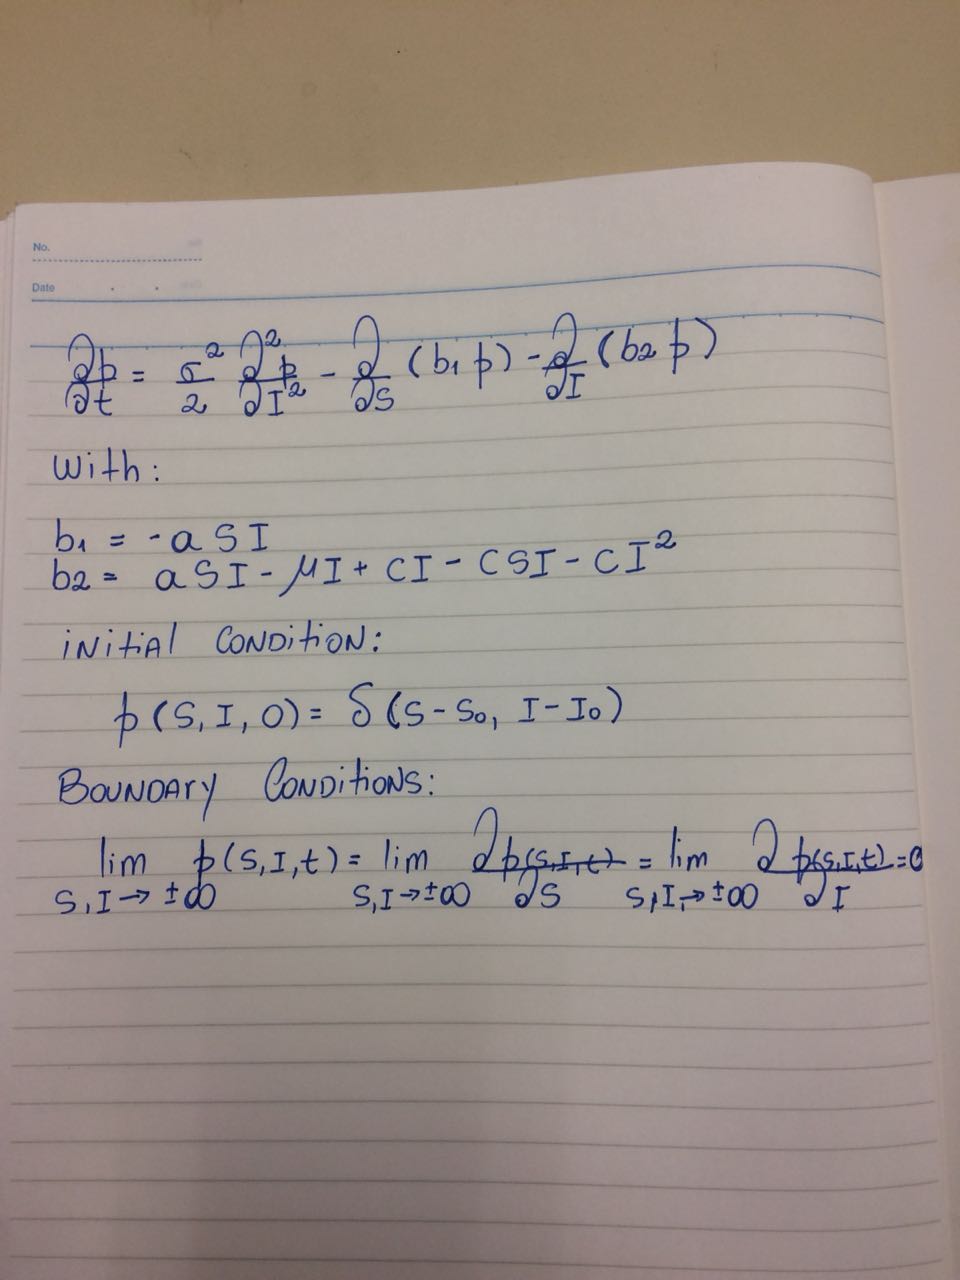 No.
Date
∂p/∂t = σ²/2 ∂²p/∂I² - ∂/∂S (b₁ p) - ∂/∂I (b₂ p)
With:
b₁ = -a S I
b₂ = a S I - μI + CI - CSI - CI²
INITIAL CONDITION:
p(S, I, 0) = δ(S - S₀, I - I₀)
BOUNDARY CONDITIONS:
lim S,I→±∞ p(S,I,t) = lim S,I→±∞ ∂p(S,I,t)/∂S = lim S,I→±∞ ∂p(S,I,t)/∂I = 0